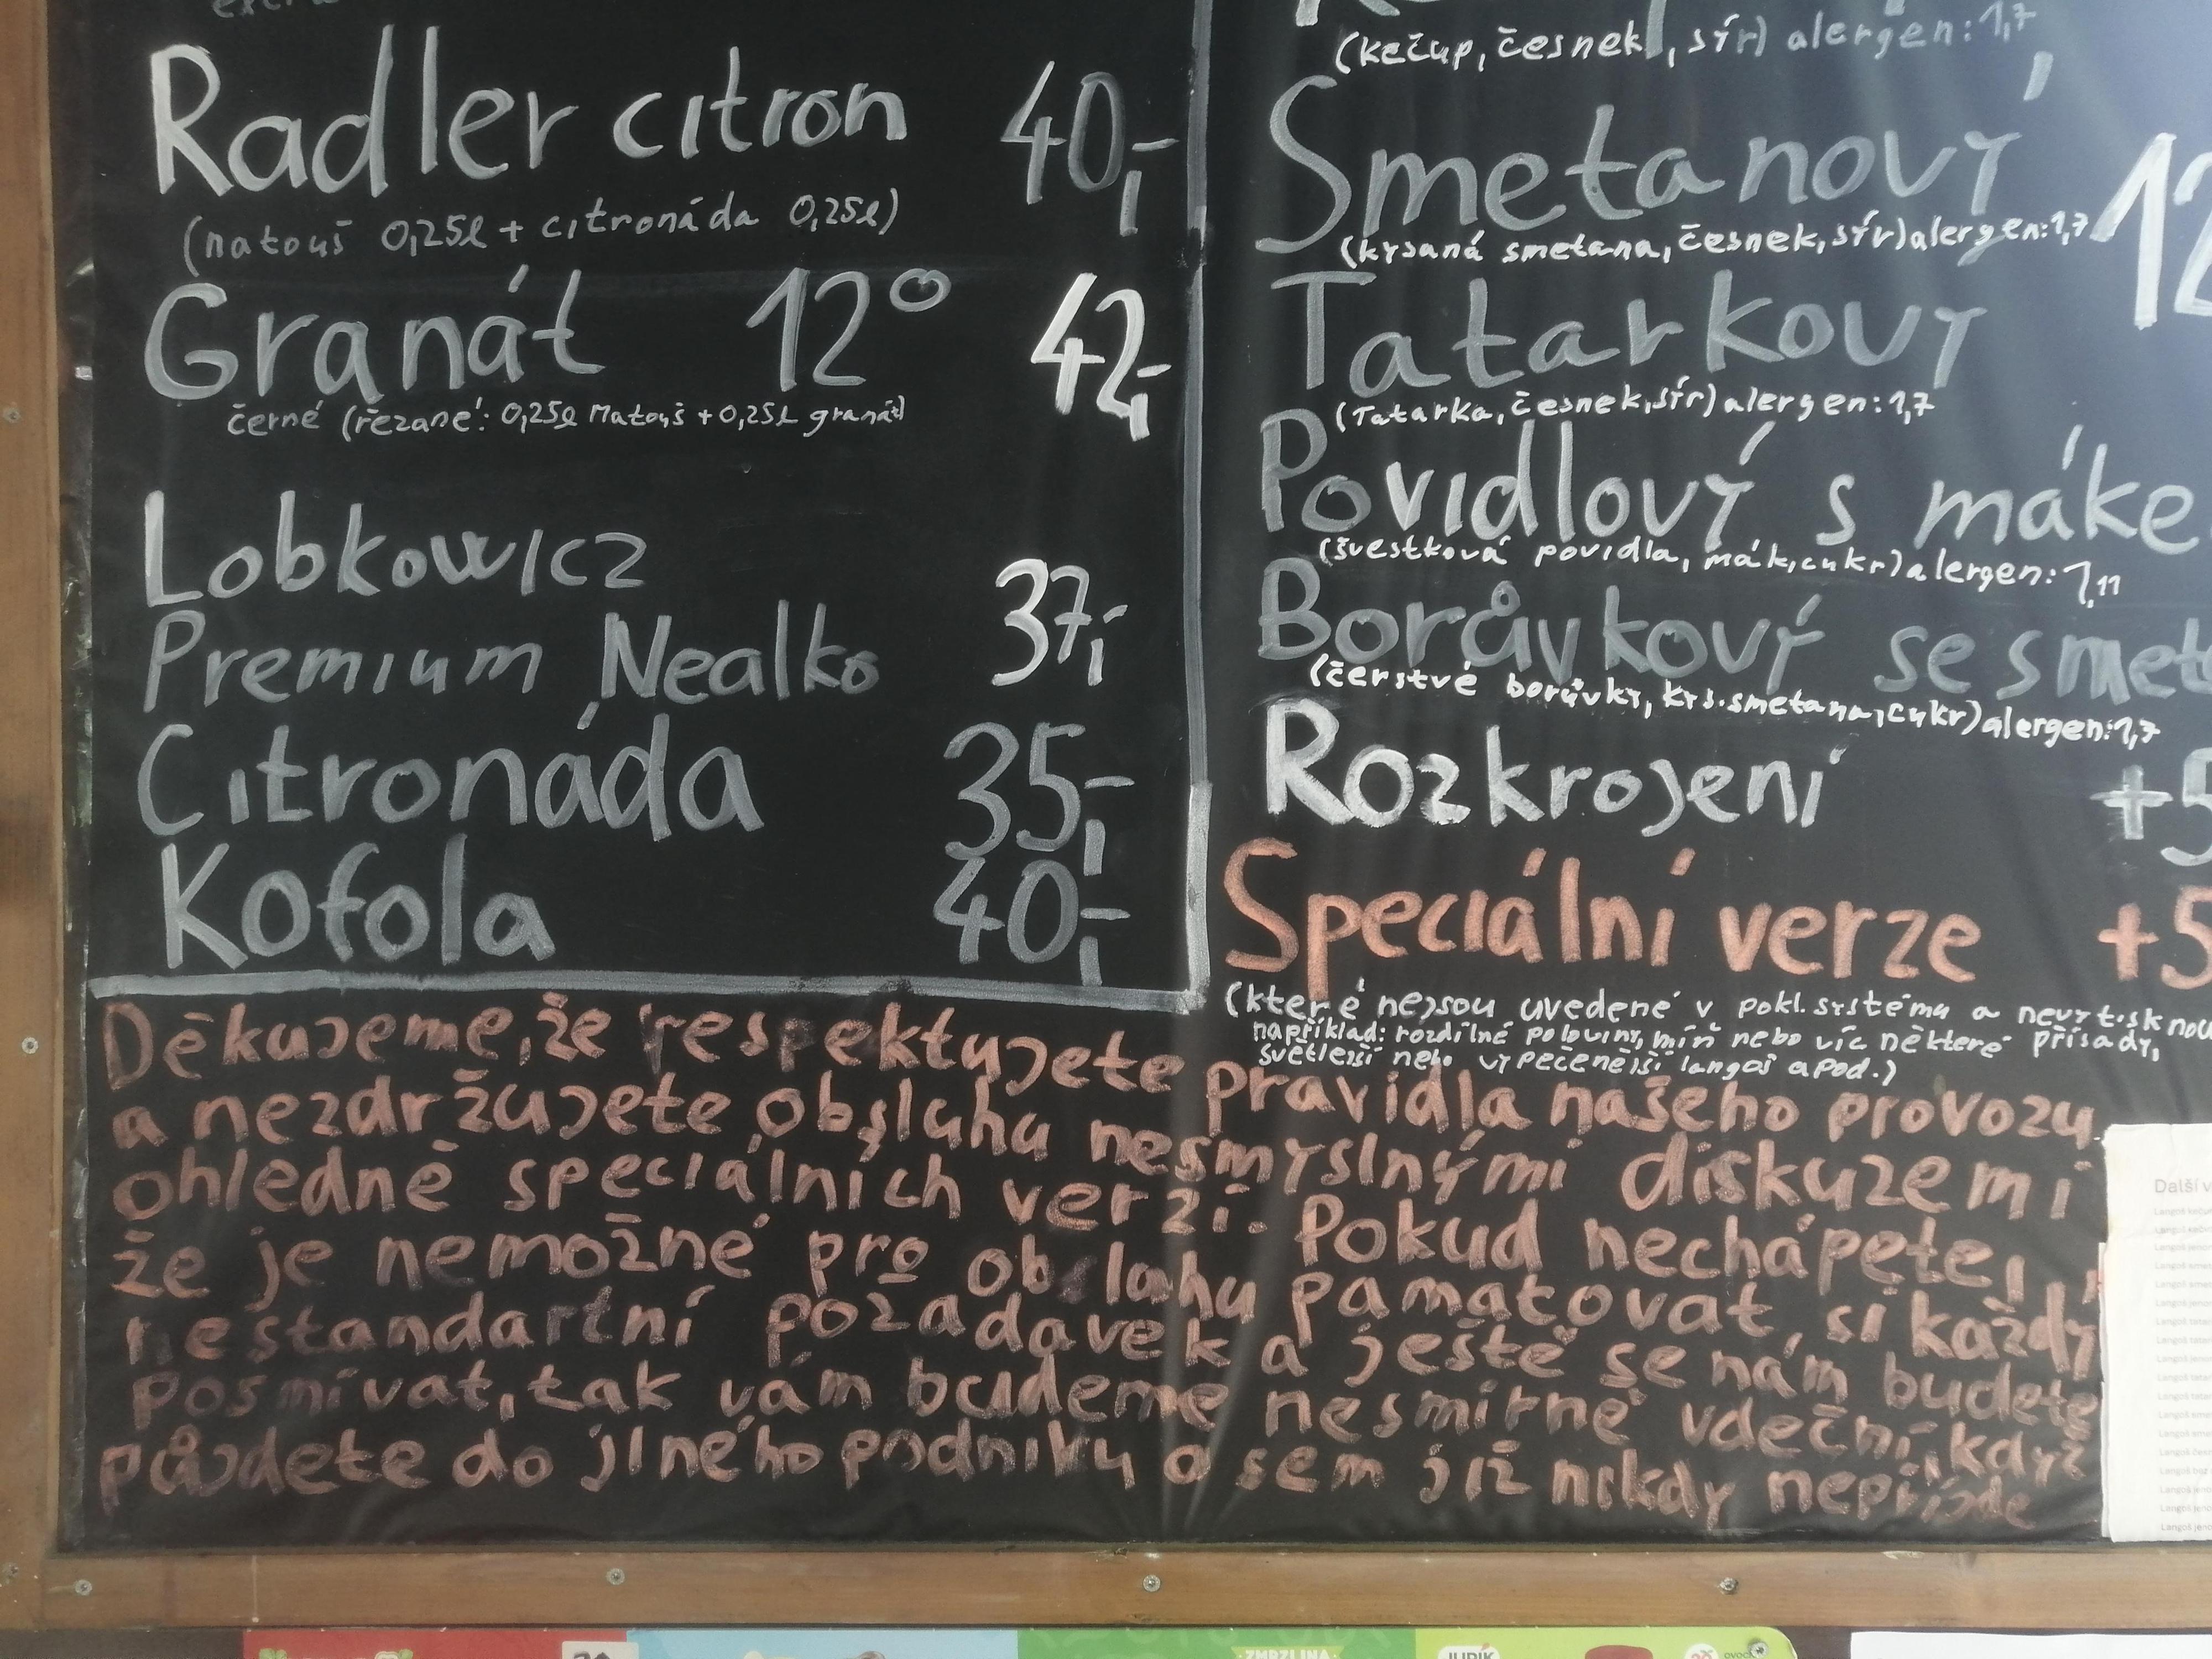 Radler citron 40,-
(natouš 0,25l + citronáda 0,25l)
Granát 12° 42,-
černé (řezané: 0,25l Matouš + 0,25l granát)
Lobkowicz
Premium Nealko 37,-
Citronáda 35,-
Kofola 40,-
(kečup, česnek, sýr) alergen: 1,7
Smetanový
(kysaná smetana, česnek, sýr) alergen: 1,7
Tatarkový
(Tatarka, česnek, sýr) alergen: 1,7
Povidlový s máke
(švestková povidla, mák, cukr) alergen: 1,11
Borůvkový se smet
(čerstvé borůvky, kys. smetana, cukr) alergen: 1,7
Rozkrojení +5
Speciální verze +5
(které nejsou uvedené v pokl. systému a nevytisknou
například: rozdílné poloviny, míň nebo víc některé přísady,
světlejší nebo vypečenější langoš apod.)
Děkujeme, že respektujete pravidla našeho provozu
a nezdržujete obsluhu nesmyslnými diskuzemi
ohledně speciálních verzí. Pokud nechápete,
že je nemožné pro obsluhu pamatovat si každý
nestandartní pozadavek a ještě se nám budete
posmívat, tak vám budeme nesmírně vdeční, když
půjdete do jiného podniku a sem již nikdy nepřijde
Další v
ZMRZLINA